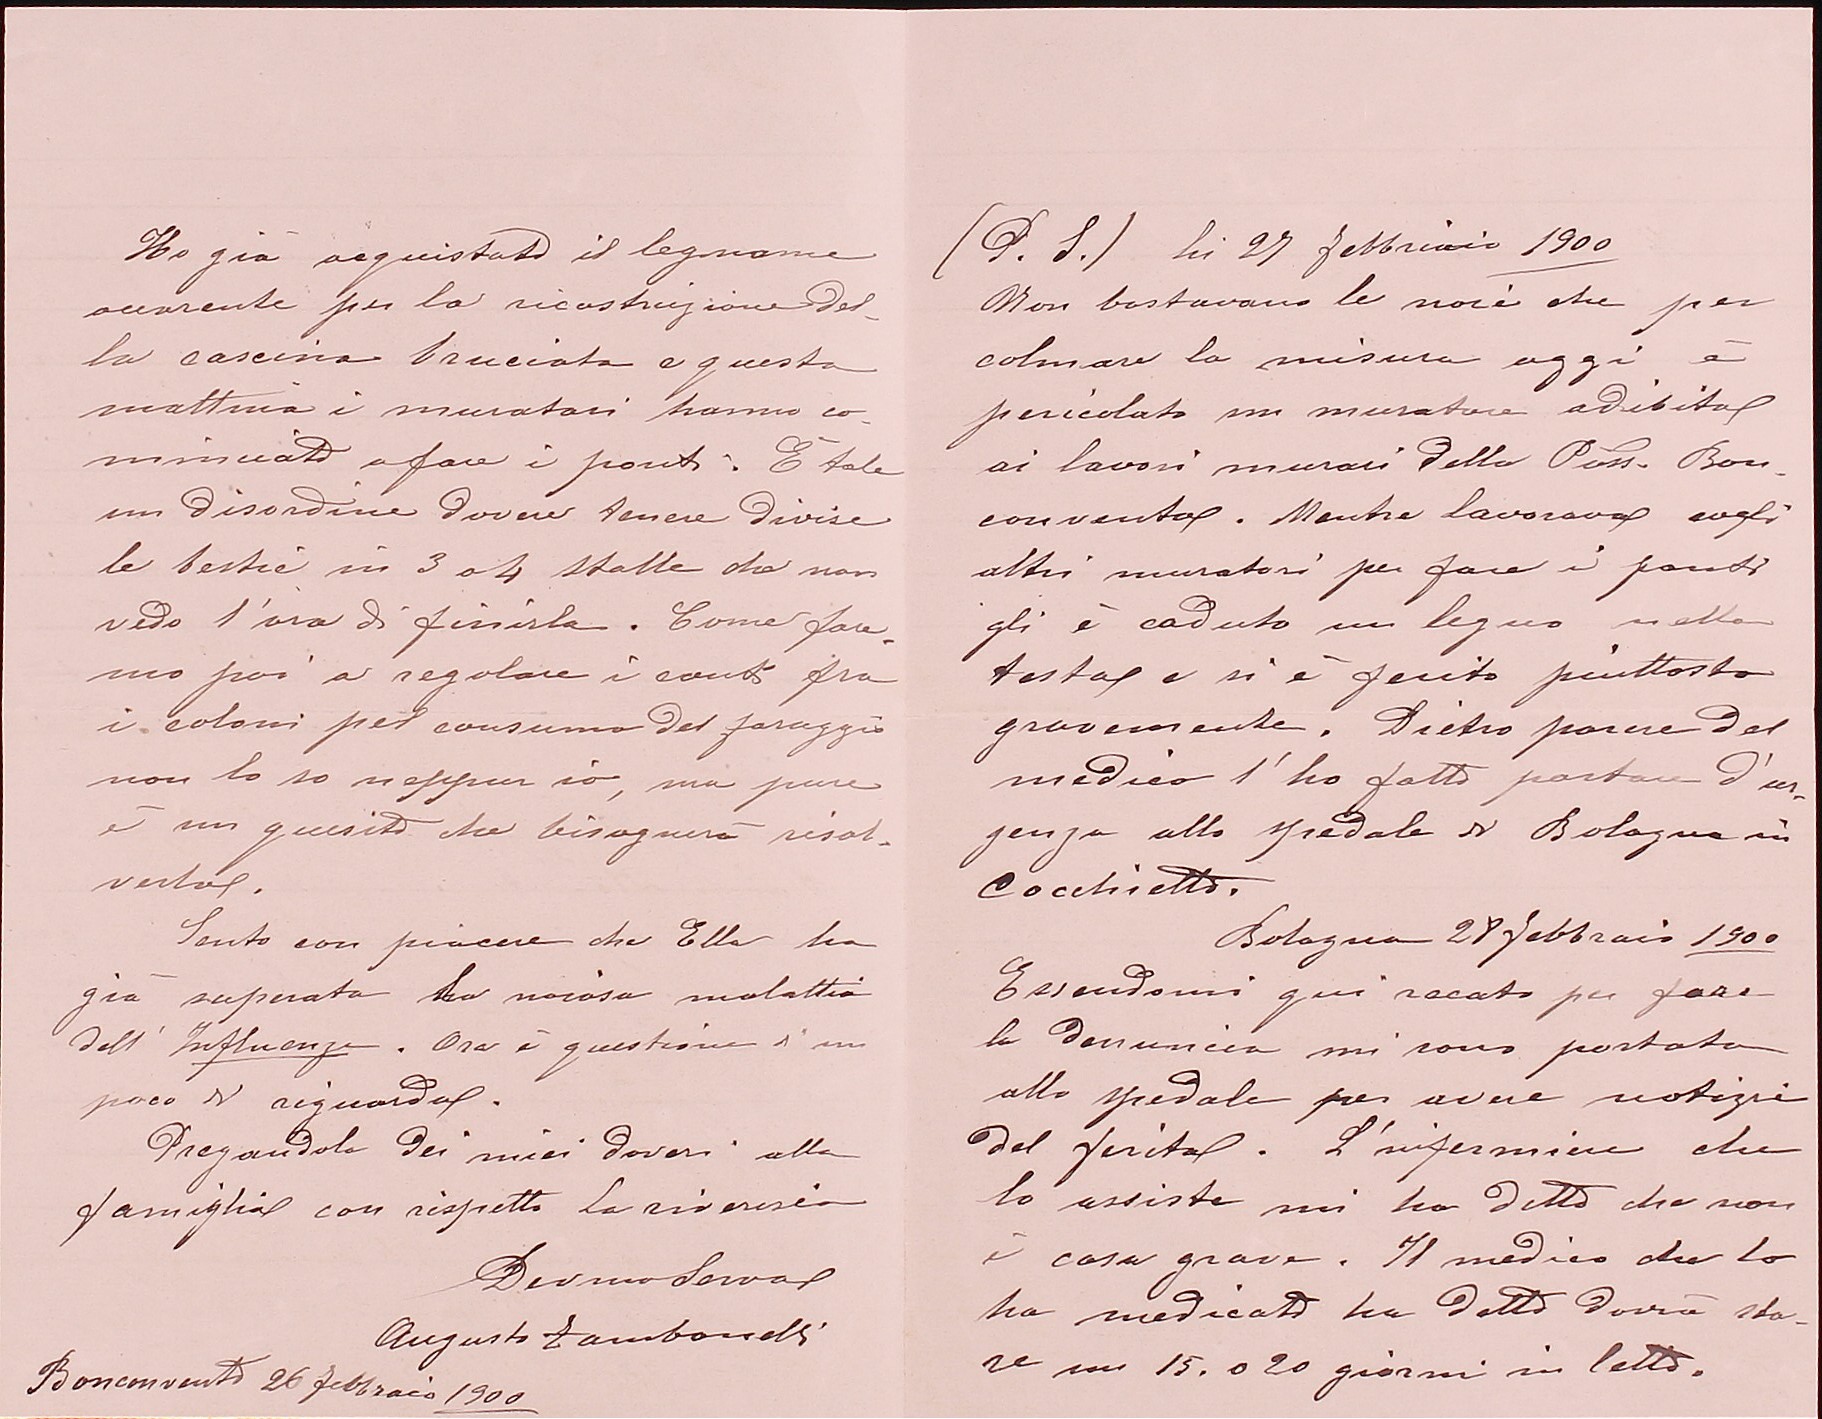 Ho già acquistato il legname
occorrente per la ricostruzione del-
la cascina bruciata e questa
mattina i muratori hanno co-
minciato a fare i ponti. È tale
un disordine dovere tenere divise
le bestie in 3 o 4 stalle che non
vedo l'ora di finirla. Come fare-
mo poi a regolare i conti fra
i coloni pel consumo del foraggio
non lo so neppur io, ma pure
è un quesito che bisognerà risol-
verlo.
Sento con piacere che Ella ha
già superata la noiosa malattia
dell'Influenza. Ora è questione di un
poco di riguardo.
Pregandola dei miei doveri alla
famiglia con rispetto La riverisco
Devmo Servo
Augusto Zambonelli
Bonconvento 26 febbraio 1900
(P. S.) li 27 febbraio 1900
Non bastavano le noie che per
colmare la misura oggi è
pericolato un muratore adibito
ai lavori murari della Poss. Bon-
convento. Mentre lavorava cogli
altri muratori per fare i ponti
gli è caduto un legno nella
testa e si è ferito piuttosto
gravemente. Dietro parere del
medico l'ho fatto portare d'ur-
genza allo spedale di Bologna in
Cocchietto.
Bologna 28 febbraio 1900
Essendomi qui recato per fare
la denuncia mi sono portato
allo spedale per avere notizie
del ferito. L'infermiere che
lo assiste mi ha detto che non
è cosa grave. Il medico che lo
ha medicato ha detto dovrà sta-
re un 15. o 20 giorni in letto.